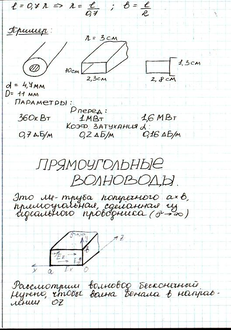 Пример:
λ = 3 см
10см
2,3см
1,3см
2,8см
d = 4,7мм
D = 11 мм
Параметры:
Pперед:
360кВт 1МВт 1,6 МВт
Коэф затухания α
0,7дБ/м 0,2 дБ/м 0,16дБ/м
ПРЯМОУГОЛЬНЫЕ
ВОЛНОВОДЫ.
Это Ме-труба попуречного a×b,
прямоугольная, сделанная из
идеального проводника (σ→∞)
x a 0 z
Рассмотрим волновод бесконечный
нужно, чтобы волна бежала в направ-
лении OZ